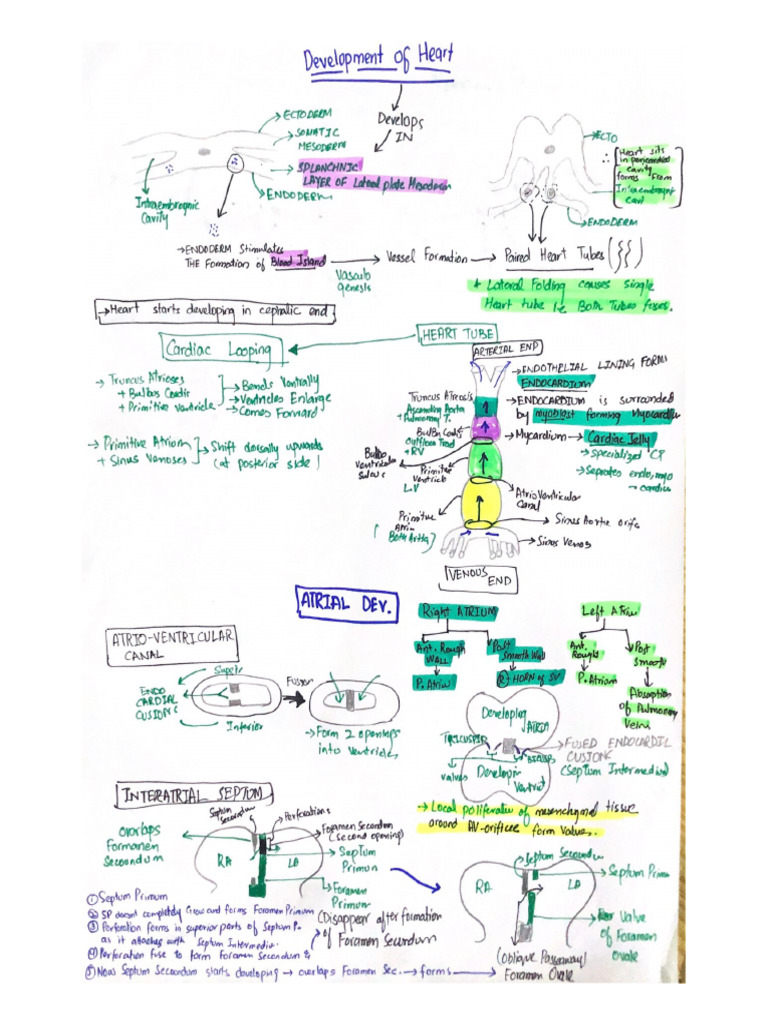 Development of Heart
Develops
IN
ECTODERM
SOMATIC
MESODERM
SPLANCHNIC
LAYER OF Lateral plate Mesoderm
ENDODERM
Intraembrognic
Cavity
→ENDODERM Stimulates
THE Formation of Blood Island
Vasculo
genesis
Vessel Formation
Paired Heart Tubes
ECTO
∴ Heart sits
in pericardial
cavity
forms from
Intraembryont
cavi
ENDODERM
* Lateral Folding causes single
Heart tube i.e Both Tubes fuses.
→Heart starts developing in cephalic end.
HEART TUBE
Cardiac Looping
→ Truncus Atrioses
+ Bulbus Cordis
+ Primitive Ventricle
→Bends Ventrally
→Ventricles Enlarge
→Comes Forward
→ Primitive Atriom
+ Sinus Venoses
→Shift dorsally upwards
(at posterior side)
ARTERIAL END
Truncus Atreosis
Ascending Aorta
+ Pulmonary T.
Bulbu Cordis
Outflow Trad
+ RV
Bulbo
Ventricular
Sulcus
Primitive
Ventricle
L.V
Primitive
Atria
(Both Artia)
AtrioVentricular
Canal
Sinus Aortic orific
Sinus Venos
VENOUS
END
→ENDOTHELIAL LINING FORMS
ENDOCARDIUM
→ENDOCARDIUM is surrounded
by myoblast forming Myocardiu
→Mycardium→Cardiac Jelly
→specialized CT
→Seprates endo, myo
cardium
ATRIAL DEV.
ATRIO-VENTRICULAR
CANAL
Superi
ENDO
CARDIAL
CUSIONS
Inferior
Fusion
→Form 2 openings
into Ventricles
Right ATRIUM
Ant. Rough
WALL
P. Atrium
Post
smooth Wall
R HORN of SV
Left Atriu
Ant.
Rough
P. Atriom
Post
smooth
Absoption
of Pulmonary
Veins
Developing
ATRIA
TRICUSPID
BICUSP
valves
Developin
Ventricl
FUSED ENDOCARDIL
CUSIONS
(Septum Intermedius)
→Local poliferatio of mesenchymal tissue
around AV-orifice form Valves.
INTERATRIAL SEPTUM
Overlaps
Formamen
Secoundum
Septum
Secoundum
Perforations
Foramen Secundum
(Second opening)
RA
LA
Septum
Primum
Foramen
Primum
(Disappear after formation
of Foramen Secundum
RA
LA
Septum Secoundum
Septum Primum
Valve
of Foramen
Ovale
(Oblique Passeway)
Foramen Ovale
① Septum Primum
② SP doesnt completely Grow and forms Foramen Primum
③ Perforation forms in superior parts of Septum P.
as it attaches with Septum Intermedius
④ Perforation fuse to form Foramen Secundum
⑤ New Septum Secoundum starts developing → overlaps Foramen Sec. → forms